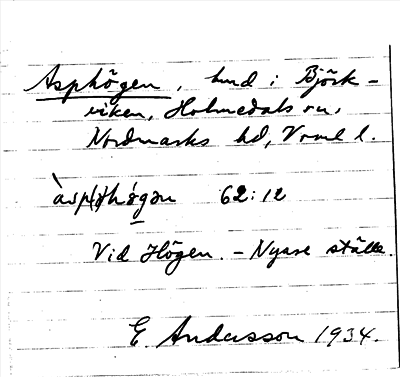 Asphögen, hmd i Björk-
viken, Holmedals sn,
Nordmarks hd, Vrml l.
àsp(h)hö́gən 62:12
Vid Högen. - Nyare ställe.
E. Andersson 1934.